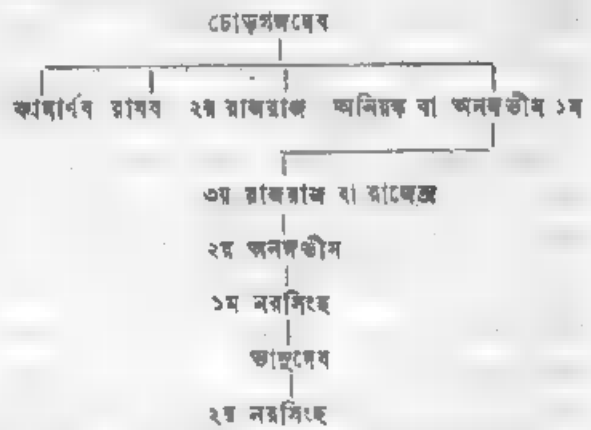 চোড়গঙ্গদেব
কামার্ণব রাঘব ২য় রাজরাজ অনিয়ঙ্ক বা অনঙ্গভীম ১ম
৩য় রাজরাজ বা রাজেন্দ্র
২য় অনঙ্গভীম
১ম নরসিংহ
ভানুদেব
২য় নরসিংহ